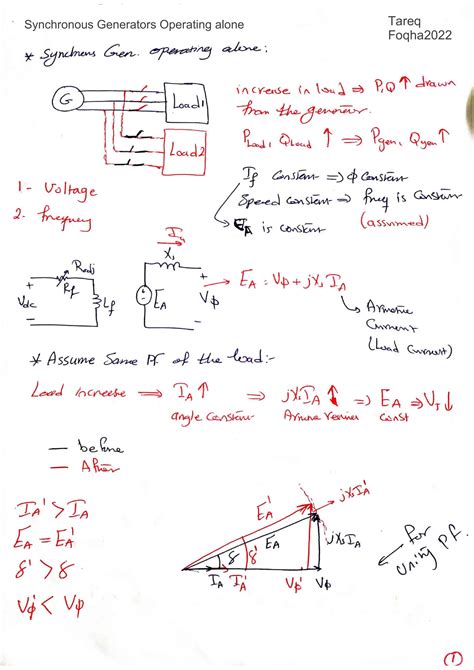 Synchronous Generators Operating alone
Tareq
Foqha2022
* Synchrnous Gen. operating alone:
G
Load1
Load2
increase in load ⇒ P,Q ↑ drawn
from the generator.
PLoad, QLoad ↑ ⇒ Pgen, Qgen ↑
If constant ⇒ ϕ constant
Speed constant ⇒ freq is constant
(assumed)
EA is constant
1- Voltage
2. frequency
Radj
Rf
Vdc
Lf
+
-
IA
Xs
EA
+
Vϕ
-
EA = Vϕ + jXs IA
Armature
Current
(Load Current)
* Assume Same PF of the load:-
Load increase ⇒ IA ↑ ⇒ jXsIA ↑ ⇒ EA ⇒ VT ↓
angle constant
const
— before
— After
IA' > IA
EA = EA'
δ' > δ
Vϕ' < Vϕ
EA'
EA
jXsIA'
jXsIA
δ
δ'
IA
IA'
Vϕ'
Vϕ
for
unity PF.
(1)